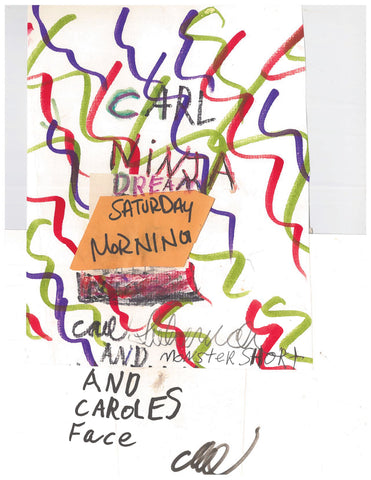 CARL
NINJA
DREAM
SATURDAY
MORNING
AND MONSTER SHORT
AND
CAROLES
Face